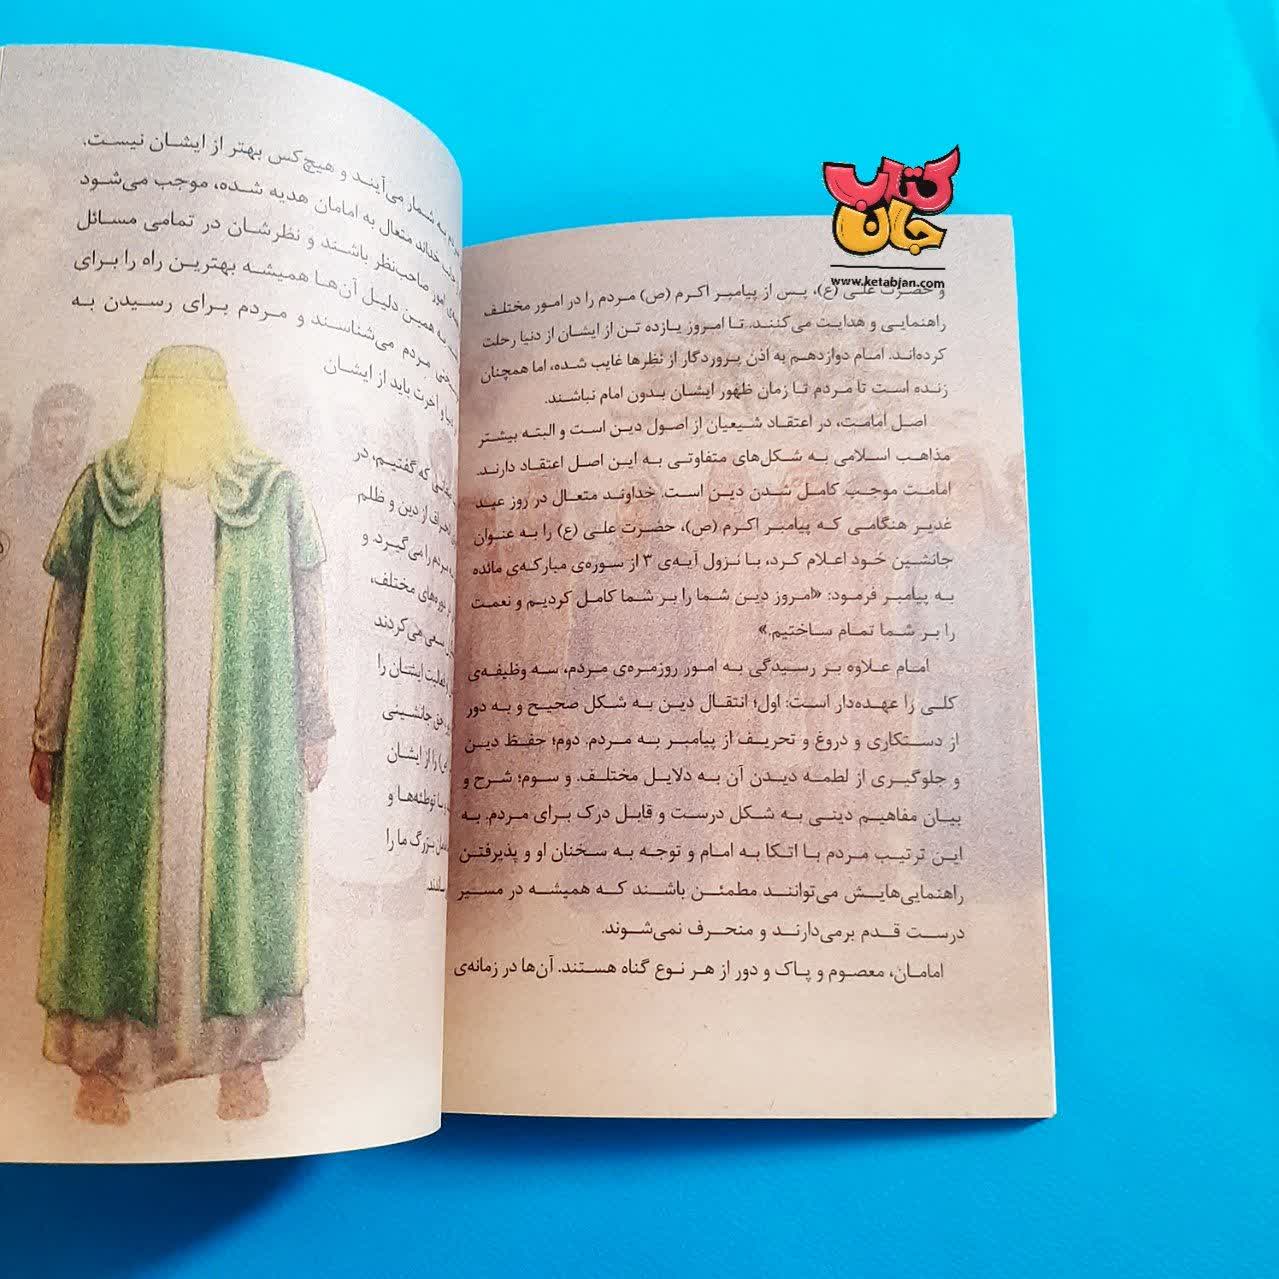 کتاب
جان
www.ketabjan.com
و حضرت علی (ع)، پس از پیامبر اکرم (ص) مردم را در امور مختلف
راهنمایی و هدایت می‌کنند. تا امروز یازده تن از ایشان از دنیا رحلت
کرده‌اند. امام دوازدهم به اذن پروردگار از نظرها غایب شده، اما همچنان
زنده است تا مردم تا زمان ظهور ایشان بدون امام نباشند.
اصل امامت، در اعتقاد شیعیان از اصول دین است و البته بیشتر
مذاهب اسلامی به شکل‌های متفاوتی به این اصل اعتقاد دارند.
امامت موجب کامل شدن دین است. خداوند متعال در روز عید
غدیر هنگامی که پیامبر اکرم (ص)، حضرت علی (ع) را به عنوان
جانشین خود اعلام کرد، با نزول آیه‌ی ۳ از سوره‌ی مبارکه‌ی مائده
به پیامبر فرمود: «امروز دین شما را بر شما کامل کردیم و نعمت
را بر شما تمام ساختیم.»
امام علاوه بر رسیدگی به امور روزمره‌ی مردم، سه وظیفه‌ی
کلی را عهده‌دار است: اول؛ انتقال دین به شکل صحیح و به دور
از دستکاری و دروغ و تحریف از پیامبر به مردم. دوم؛ حفظ دین
و جلوگیری از لطمه دیدن آن به دلایل مختلف. و سوم؛ شرح و
بیان مفاهیم دینی به شکل درست و قابل درک برای مردم. به
این ترتیب مردم با اتکا به امام و توجه به سخنان او و پذیرفتن
راهنمایی‌هایش می‌توانند مطمئن باشند که همیشه در مسیر
درست قدم برمی‌دارند و منحرف نمی‌شوند.
امامان، معصوم و پاک و دور از هر نوع گناه هستند. آن‌ها در زمانه‌ی
به شمار می‌آیند و هیچ‌کس بهتر از ایشان نیست.
خداند متعال به امامان هدیه شده، موجب می‌شود
امور صاحب‌نظر باشند و نظرشان در تمامی مسائل
به همین دلیل آن‌ها همیشه بهترین راه را برای
مردم می‌شناسند و مردم برای رسیدن به
و آخرت باید از ایشان
که گفتیم، در
از دین و ظلم
مردم را می‌گیرد. و
دوره‌های مختلف،
سعی می‌کردند
فعالیت ایشان را
حق جانشینی
را از ایشان
با توطئه‌ها و
بزرگ ما را